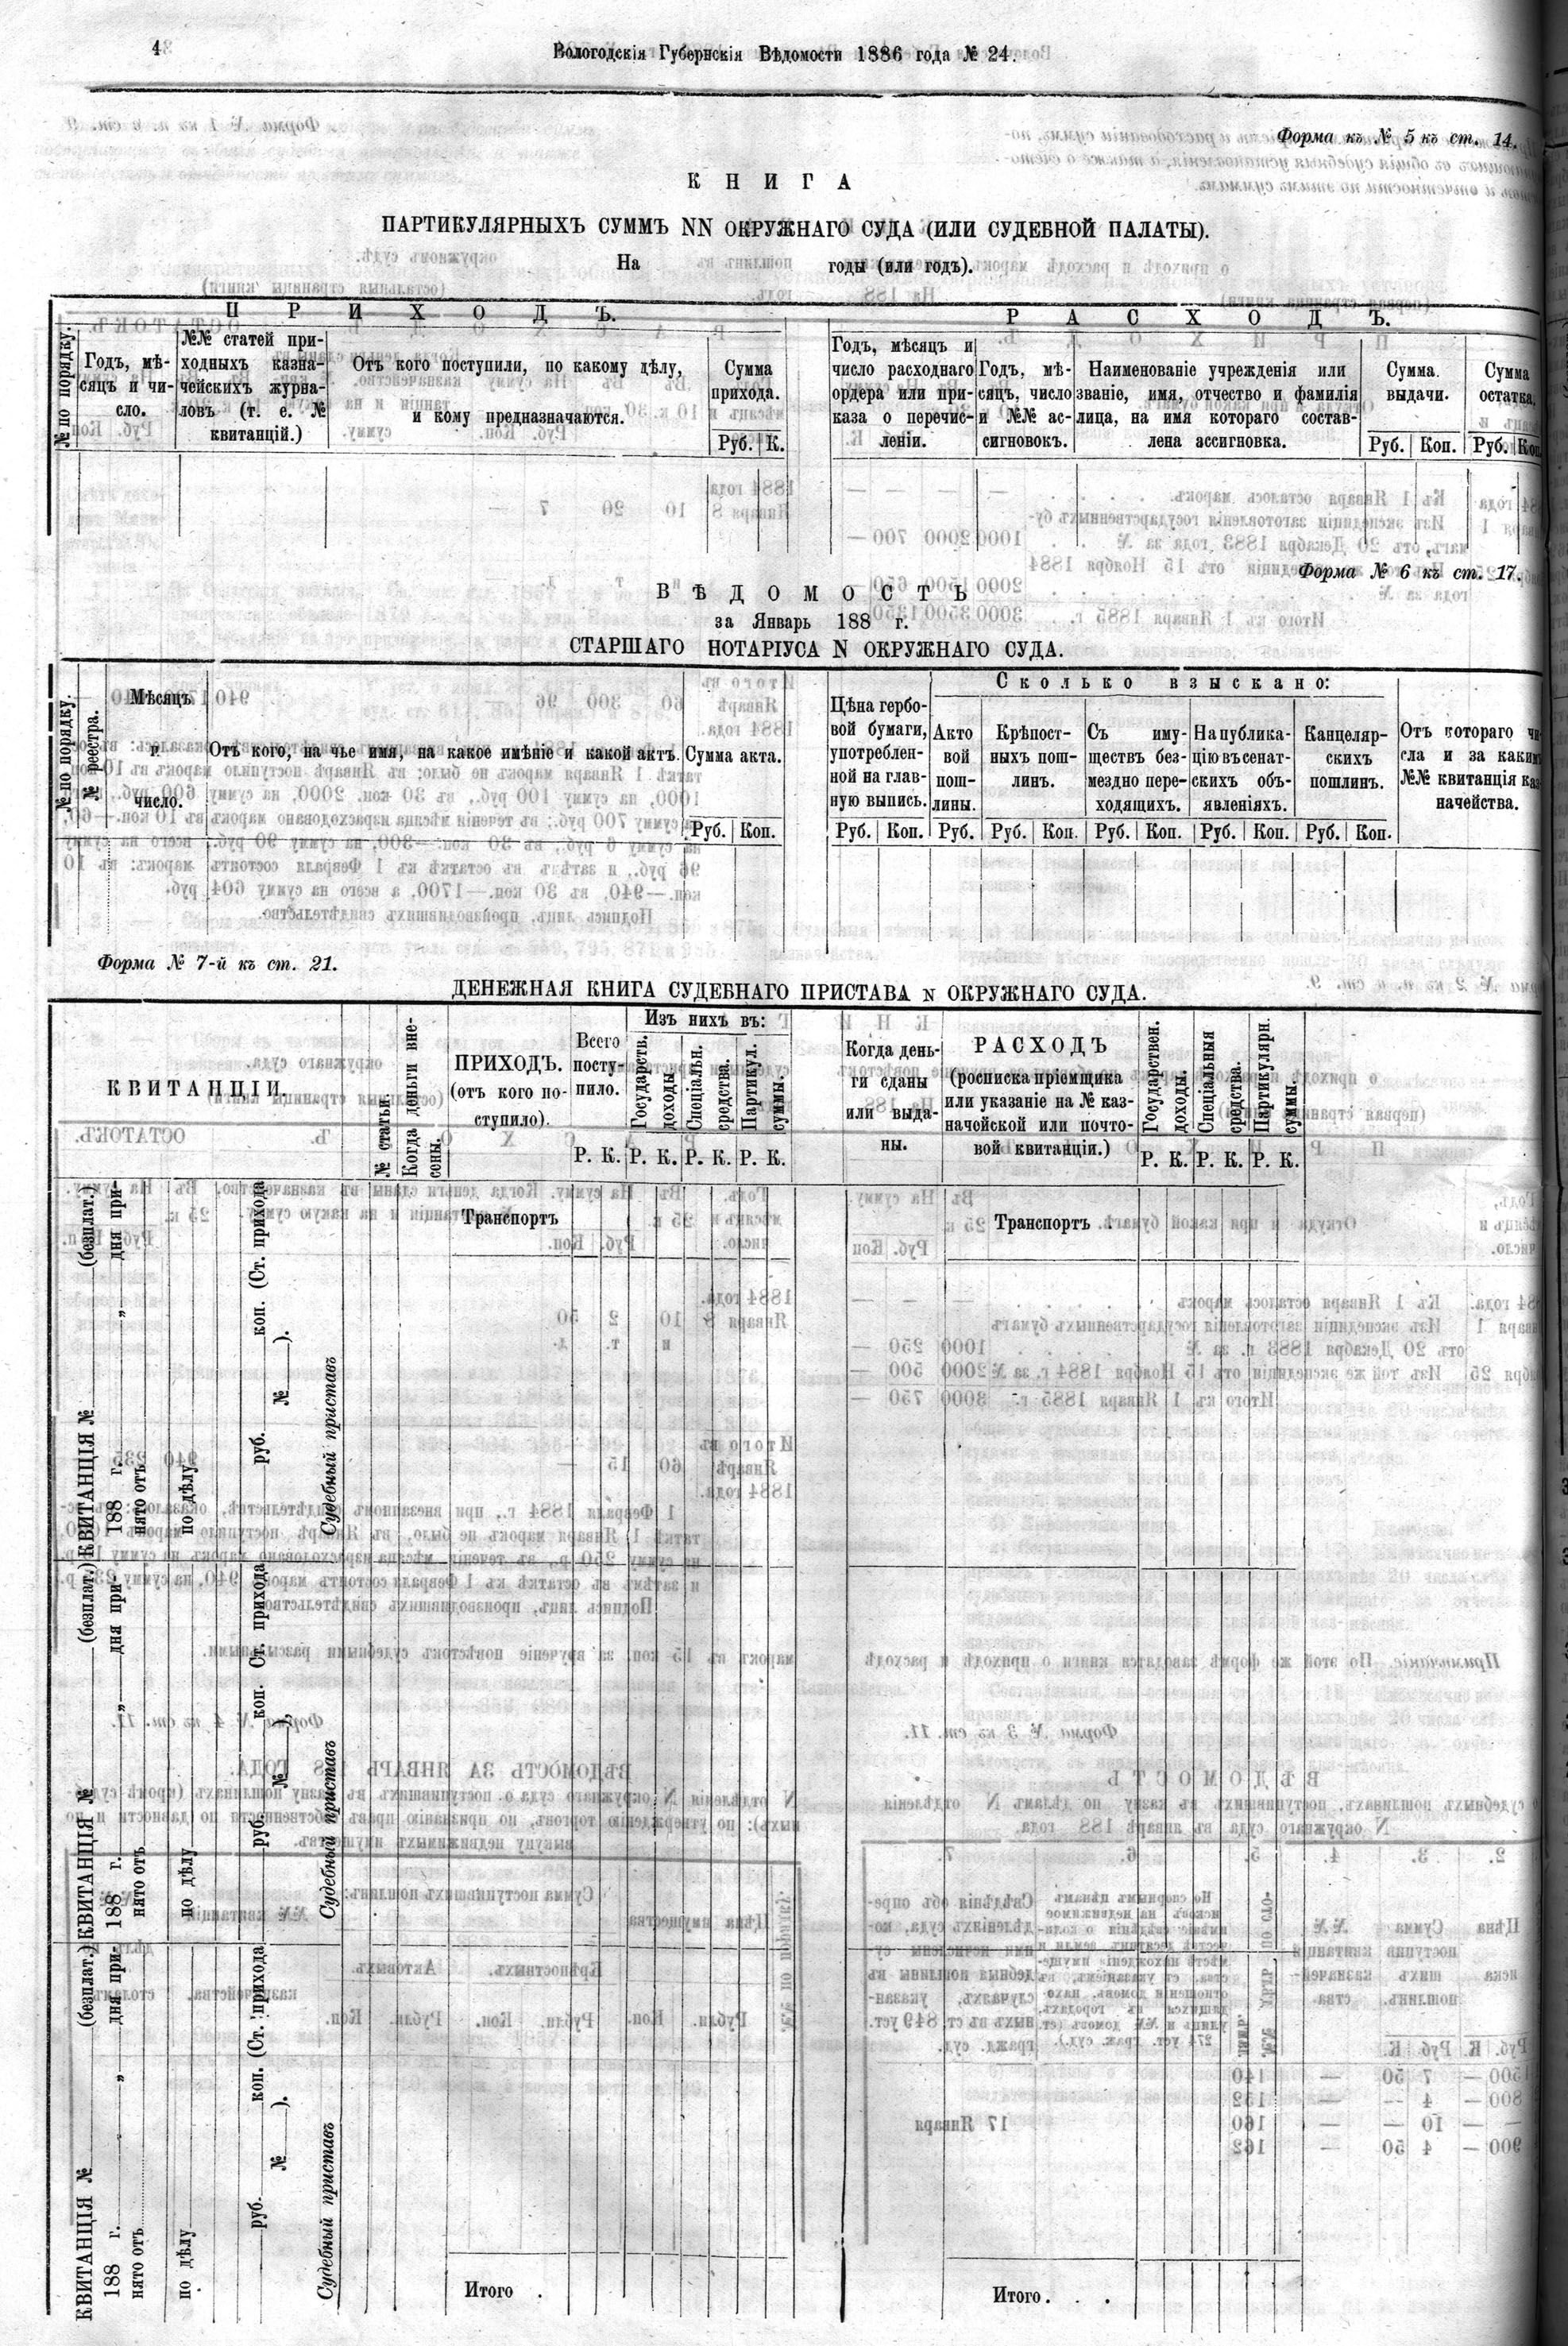 4
Вологодскія Губернскія Вѣдомости 1886 года № 24.
Форма къ № 5 къ ст. 14.
КНИГА
ПАРТИКУЛЯРНЫХЪ СУММЪ NN ОКРУЖНАГО СУДА (ИЛИ СУДЕБНОЙ ПАЛАТЫ).
На годы (или годъ).
ПРИХОДЪ.
№ по порядку.
Годъ, мѣ-
сяцъ и чи-
сло.
№№ статей при-
ходныхъ казна-
чейскихъ журна-
ловъ (т. е. №
квитанцій.)
Отъ кого поступили, по какому дѣлу,
и кому предназначаются.
Сумма
прихода.
Руб. К.
РАСХОДЪ.
Годъ, мѣсяцъ и
число расходнаго
ордера или при-
каза о перечис-
леніи.
Годъ, мѣ-
сяцъ, число
и №№ ас-
сигновокъ.
Наименованіе учрежденія или
званіе, имя, отчество и фамилія
лица, на имя котораго состав-
лена ассигновка.
Сумма.
выдачи.
Руб. Коп.
Сумма
остатка.
Руб. Коп.
Форма № 6 къ ст. 17.
ВѢДОМОСТЬ
за Январь 188 г.
СТАРШАГО НОТАРІУСА N ОКРУЖНАГО СУДА.
№ по порядку.
№ реестра.
Мѣсяцъ
и
число.
Отъ кого, на чье имя, на какое имѣніе и какой актъ.
Сумма акта.
Руб. Коп.
Цѣна гербо-
вой бумаги,
употреблен-
ной на глав-
ную выпись.
Руб. Коп.
Сколько взыскано:
Акто
вой
пош-
лины.
Руб.
Крѣпост-
ныхъ пош-
линъ.
Руб. Коп.
Съ иму-
ществъ без-
мездно пере-
ходящихъ.
Руб. Коп.
На публика-
цію въ сенат-
скихъ объ-
явленіяхъ.
Руб. Коп.
Канцеляр-
скихъ
пошлинъ.
Руб. Коп.
Отъ котораго чи-
сла и за какимъ
№№ квитанція каз-
начейства.
Форма № 7-й къ ст. 21.
ДЕНЕЖНАЯ КНИГА СУДЕБНАГО ПРИСТАВА N ОКРУЖНАГО СУДА.
КВИТАНЦІИ.
№ статьи.
Когда деньги вне-
сены.
ПРИХОДЪ.
(отъ кого по-
ступило).
Всего
посту-
пило.
Р. К.
Изъ нихъ въ:
Государств.
доходы
Р. К.
Спеціальн.
средства.
Р. К.
Партикул.
суммы.
Р. К.
Когда день-
ги сданы
или выда-
ны.
РАСХОДЪ
(росписка пріемщика
или указаніе на № каз-
начейской или почто-
вой квитанціи.)
Государствен.
доходы.
Р. К.
Спеціальныя
средства.
Р. К.
Партикулярн.
суммы.
Р. К.
Транспортъ
Транспортъ .
КВИТАНЦІЯ № (безплат.)
188 г. „ дня при-
нято отъ
по дѣлу
руб. коп. (Ст. прихода
№ ).
Судебный приставъ
КВИТАНЦІЯ № (безплат.)
188 г. „ дня при-
нято отъ
по дѣлу
руб. коп. Ст. прихода
№ ),
Судебный приставъ
КВИТАНЦІЯ № (безплат.)
188 г. „ дня при-
нято отъ
по дѣлу
руб. коп. (Ст. прихода
№ ).
Судебный приставъ
Итого .
Итого . . .